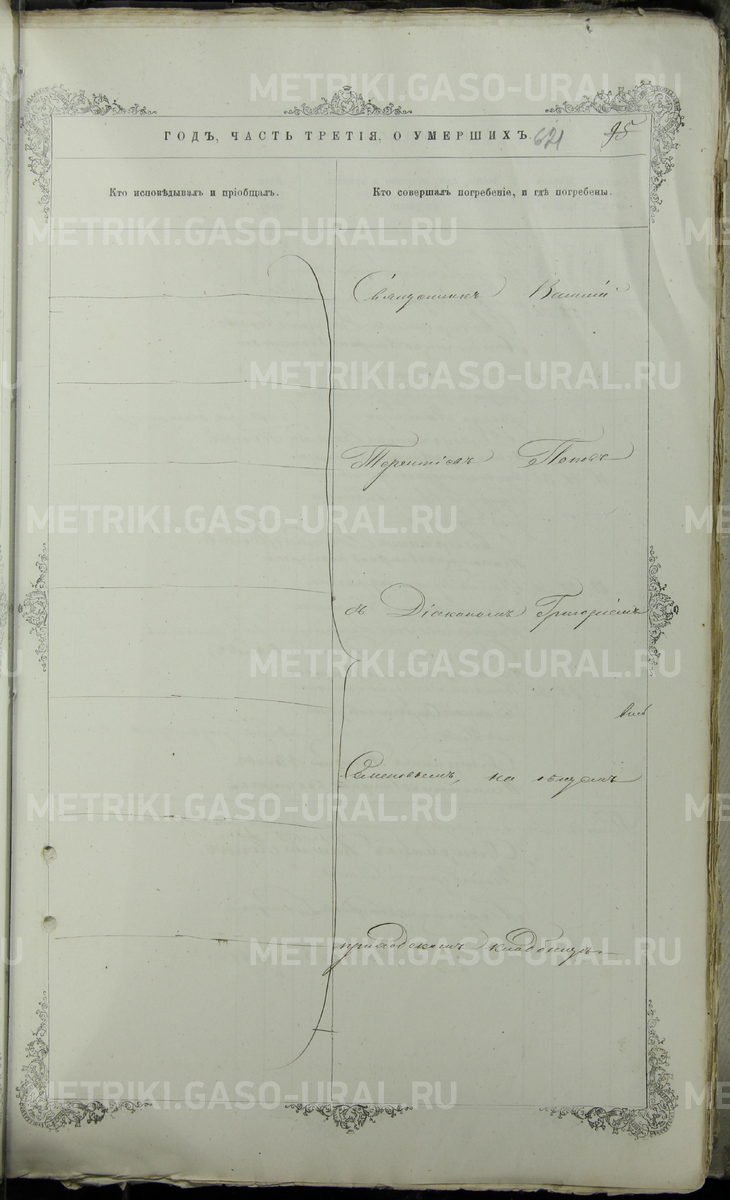 METRIKI.GASO-URAL.RU
ГОДЪ, ЧАСТЬ ТРЕТІЯ, О УМЕРШИХЪ. 621 95
Кто исповѣдывалъ и пріобщалъ.
Кто совершалъ погребеніе, и гдѣ погребены.
METRIKI.GASO-URAL.RU
Священникъ
METRIKI.GASO-URAL.RU
Терентіевъ Поповъ
METRIKI.GASO-URAL.RU
съ Діакономъ Григоріемъ
METRIKI.GASO-URAL.RU
Семеновымъ, на общемъ
METRIKI.GASO-URAL.RU
приходскомъ кладбищѣ
METRIKI.GASO-URAL.RU
METRIKI.GASO-URAL.RU